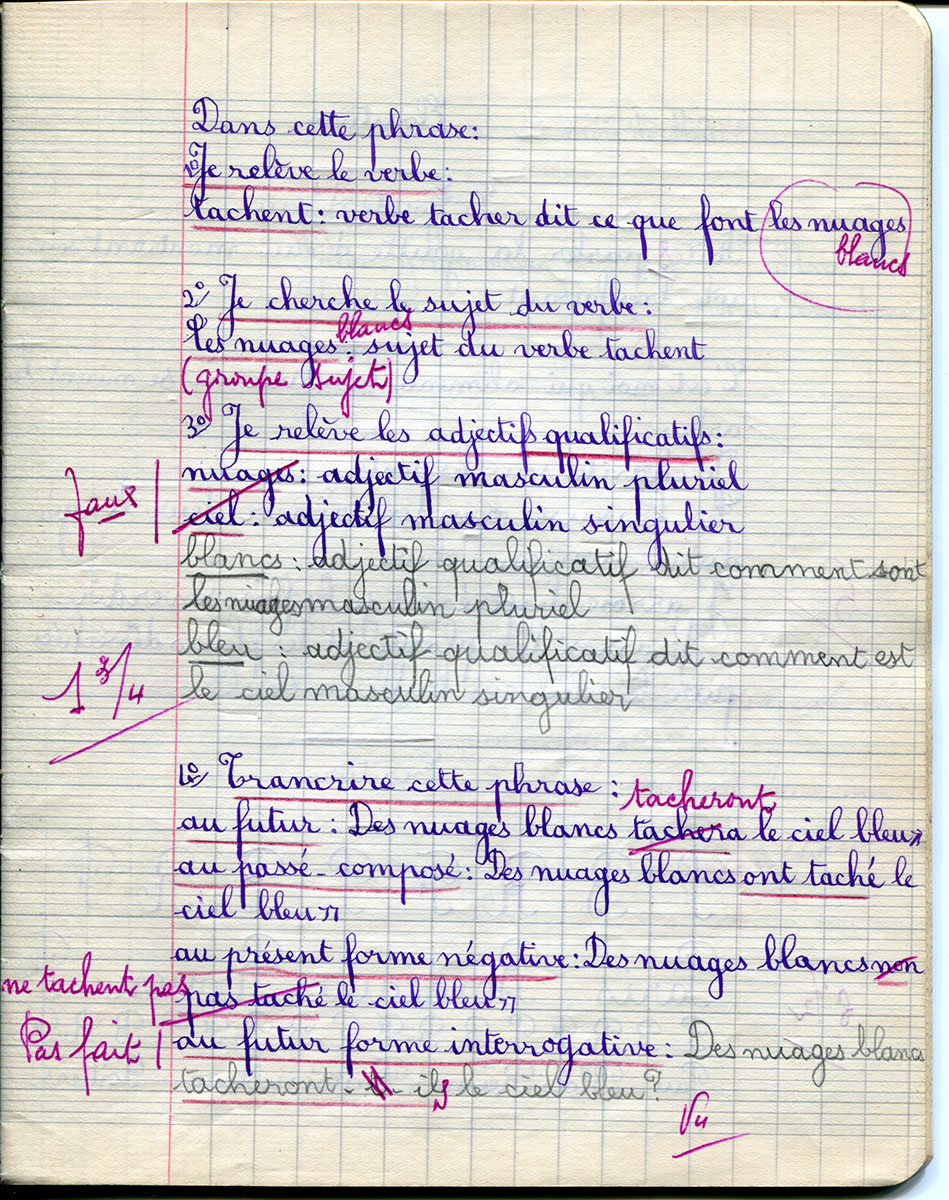 Dans cette phrase:
1º Je relève le verbe:
tachent: verbe tacher dit ce que font les nuages
blancs
2º Je cherche le sujet du verbe:
blancs
les nuages: sujet du verbe tachent
(groupe sujet)
3º Je relève les adjectifs qualificatifs:
nuages: adjectif masculin pluriel
faux
ciel: adjectif masculin singulier
blancs: adjectif qualificatif dit comment sont
les nuages masculin pluriel
bleu: adjectif qualificatif dit comment est
1 3/4
le ciel masculin singulier
4º Trancrire cette phrase:
tacheront
au futur: Des nuages blancs tachera le ciel bleu"
au passé-composé: Des nuages blancs ont taché le
ciel bleu"
au présent forme négative: Des nuages blancs non
ne tachent pas
pas taché le ciel bleu"
Pas fait
au futur forme interrogative: Des nuages blancs
tacheront- -ils le ciel bleu?
Vu